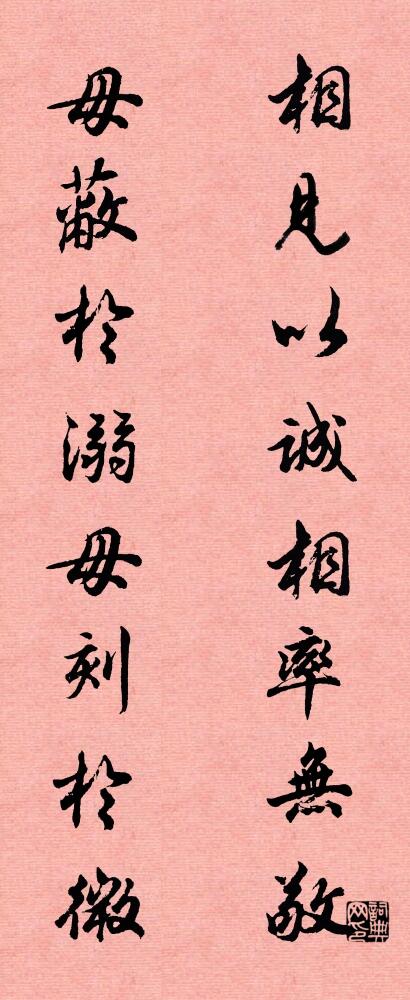 相見以誠相率無
毋蔽於溺毋刻於微
詞典
网印